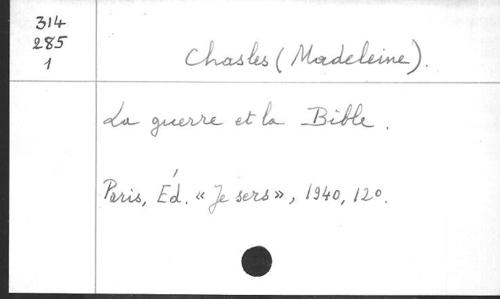 314
285
1
Chasles (Madeleine).
La guerre et la Bible.
Paris, Éd. « Je sers », 1940, 12°.